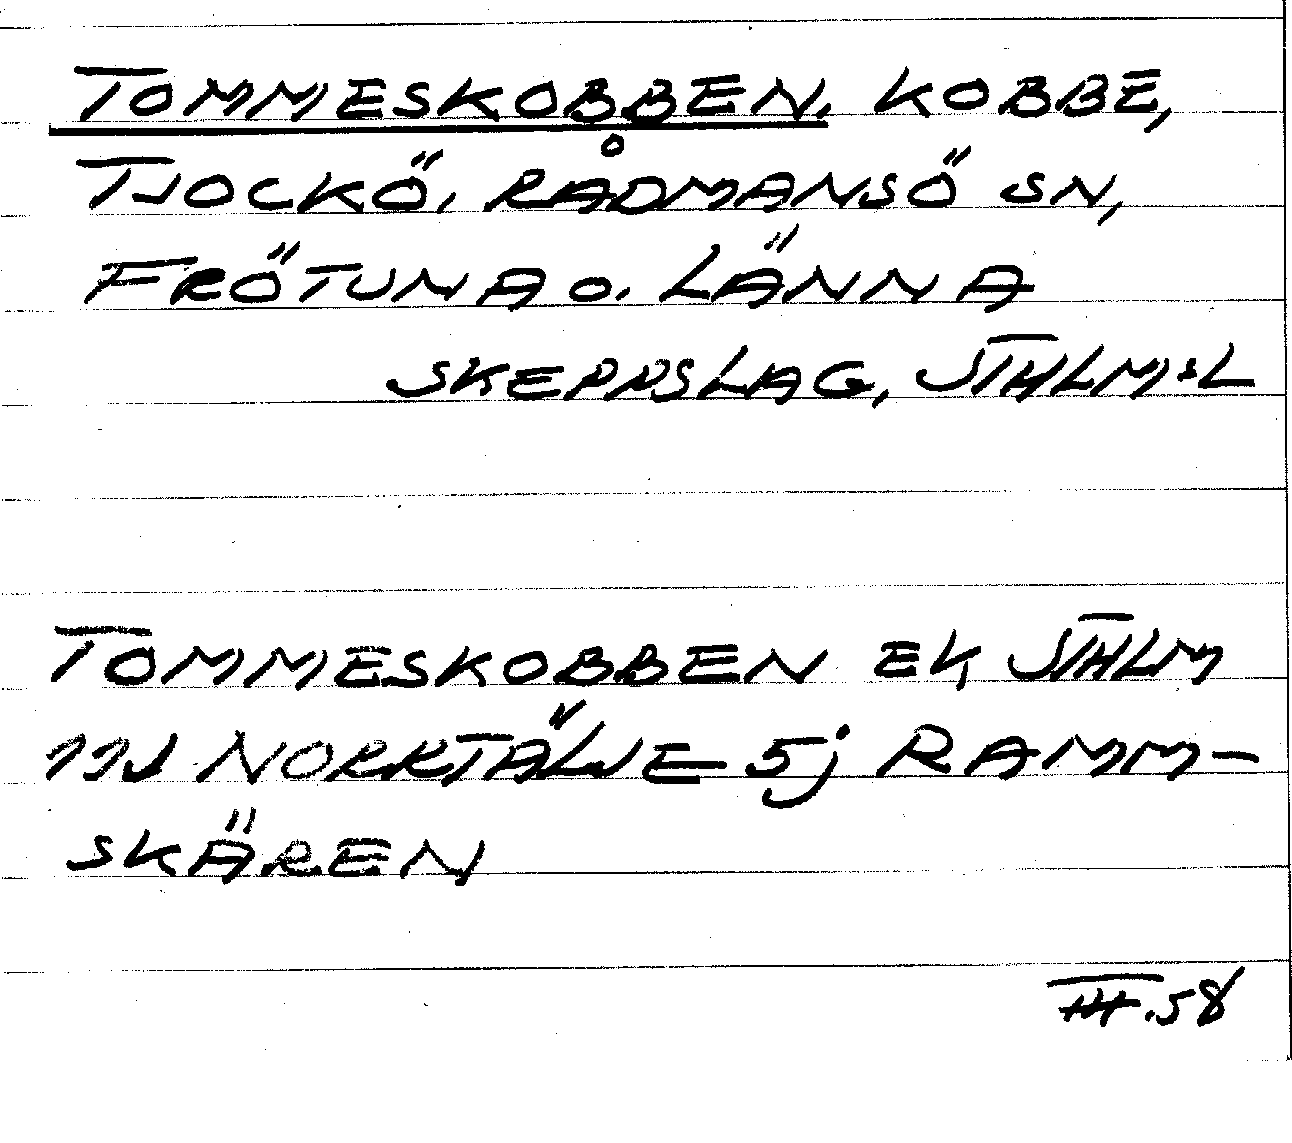 TOMMESKOBBEN, KOBBE,
TJOCKÖ, RÅDMANSÖ SN,
FRÖTUNA O. LÄNNA
SKEPPSLAG, STHLM:SL
TOMMESKOBBEN EK STHLM
111 NORRTÄLJE 5j RAMM-
SKÄREN
.58